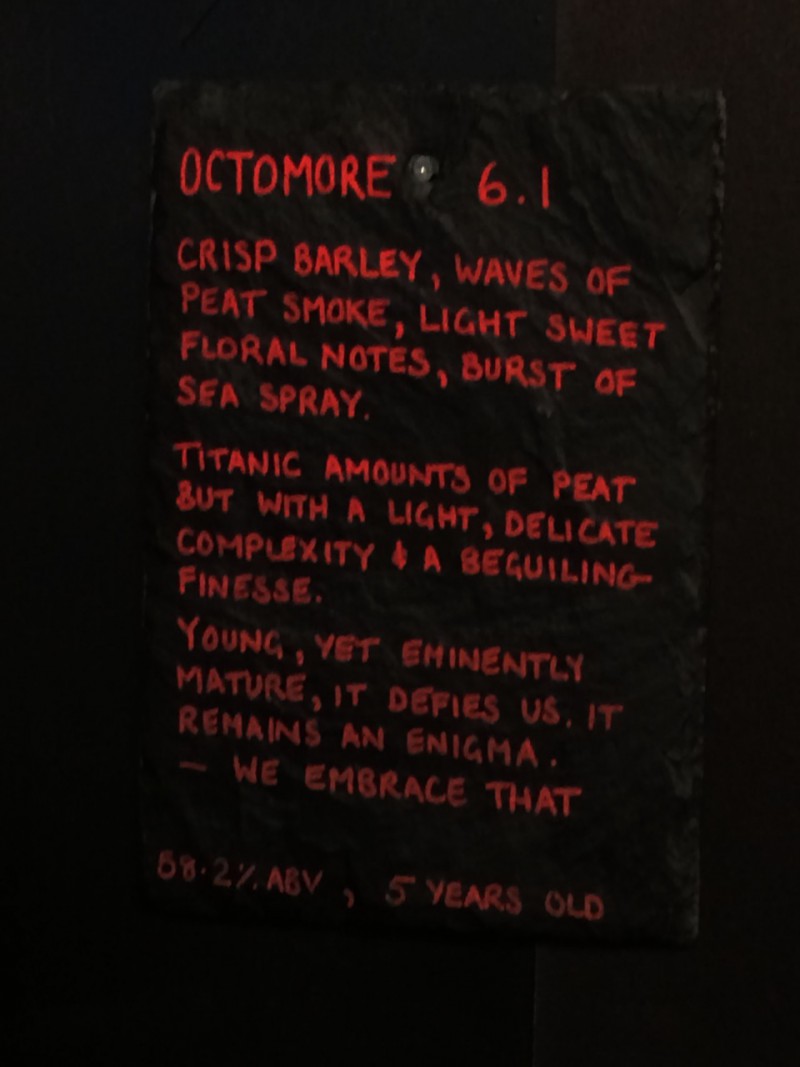 OCTOMORE 6.1
CRISP BARLEY, WAVES OF
PEAT SMOKE, LIGHT SWEET
FLORAL NOTES, BURST OF
SEA SPRAY.
TITANIC AMOUNTS OF PEAT
BUT WITH A LIGHT, DELICATE
COMPLEXITY & A BEGUILING
FINESSE.
YOUNG, YET EMINENTLY
MATURE, IT DEFIES US. IT
REMAINS AN ENIGMA.
— WE EMBRACE THAT
58.2% ABV, 5 YEARS OLD